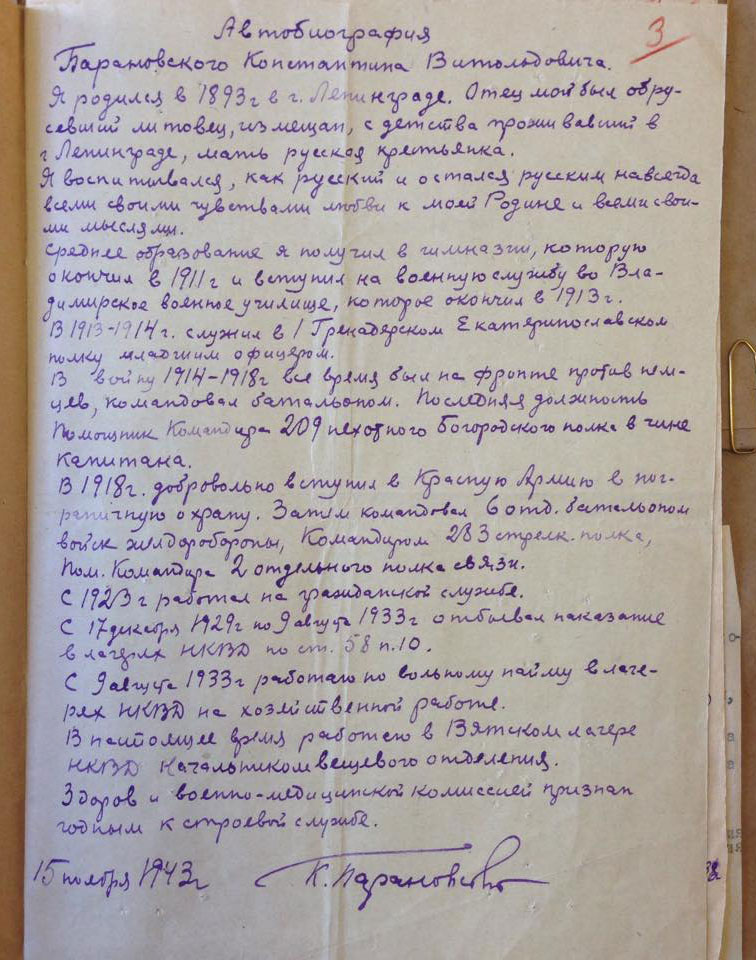 3
Автобиография
Барановского Константина Витольдовича.
Я родился в 1893г в г. Ленинграде. Отец мой был обру-
севший литовец, из мещан, с детства проживавший в
г Ленинграде, мать русская крестьянка.
Я воспитывался, как русский и остался русским навсегда
всеми своими чувствами любви к моей Родине и всеми свои-
ми мыслями.
Среднее образование я получил в гимназии, которую
окончил в 1911г и вступил на военную службу во Вла-
димирское военное училище, которое окончил в 1913г.
В 1913-1914г. служил в 1 Гренадерском Екатеринославском
полку младшим офицером.
В войну 1914-1918г все время был на фронте против нем-
цев, командовал батальоном. Последняя должность
Помощник Командира 209 пехотного Богородского полка в чине
капитана.
В 1918г. добровольно вступил в Красную Армию в пог-
раничную охрану. Затем командовал 6 отд. батальоном
войск желдоробороны, Командиром 283 стрелк. полка,
Пом. Командира 2 отдельного полка связи.
С 1923г работал на гражданской службе.
С 17 декабря 1929г по 9 августа 1933г отбывал наказание
в лагерях НКВД по ст. 58 п.10.
С 9 августа 1933г работаю по вольному найму в лаге-
рях НКВД на хозяйственной работе.
В настоящее время работаю в Вятском лагере
НКВД Начальником вещевого отделения.
Здоров и военно-медицинской комиссией признан
годным к строевой службе.
15 ноября 1943г К. Барановский